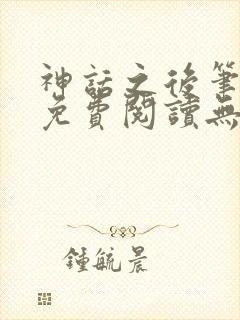 神話之後筆
免費閱讀無
鍾毓晨